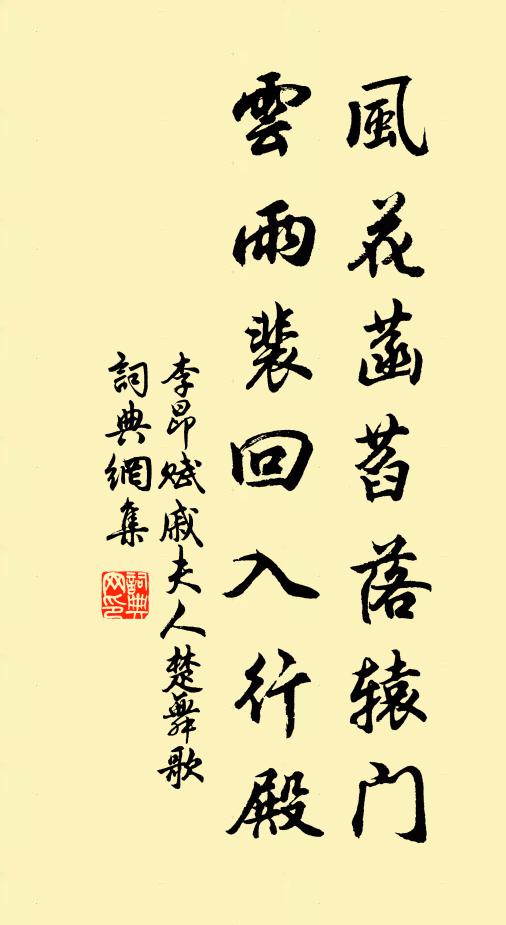 風花菡萏落辕门
雲雨裴回入行殿
李昂赋戚夫人楚舞歌
詞典網集
詞典网印